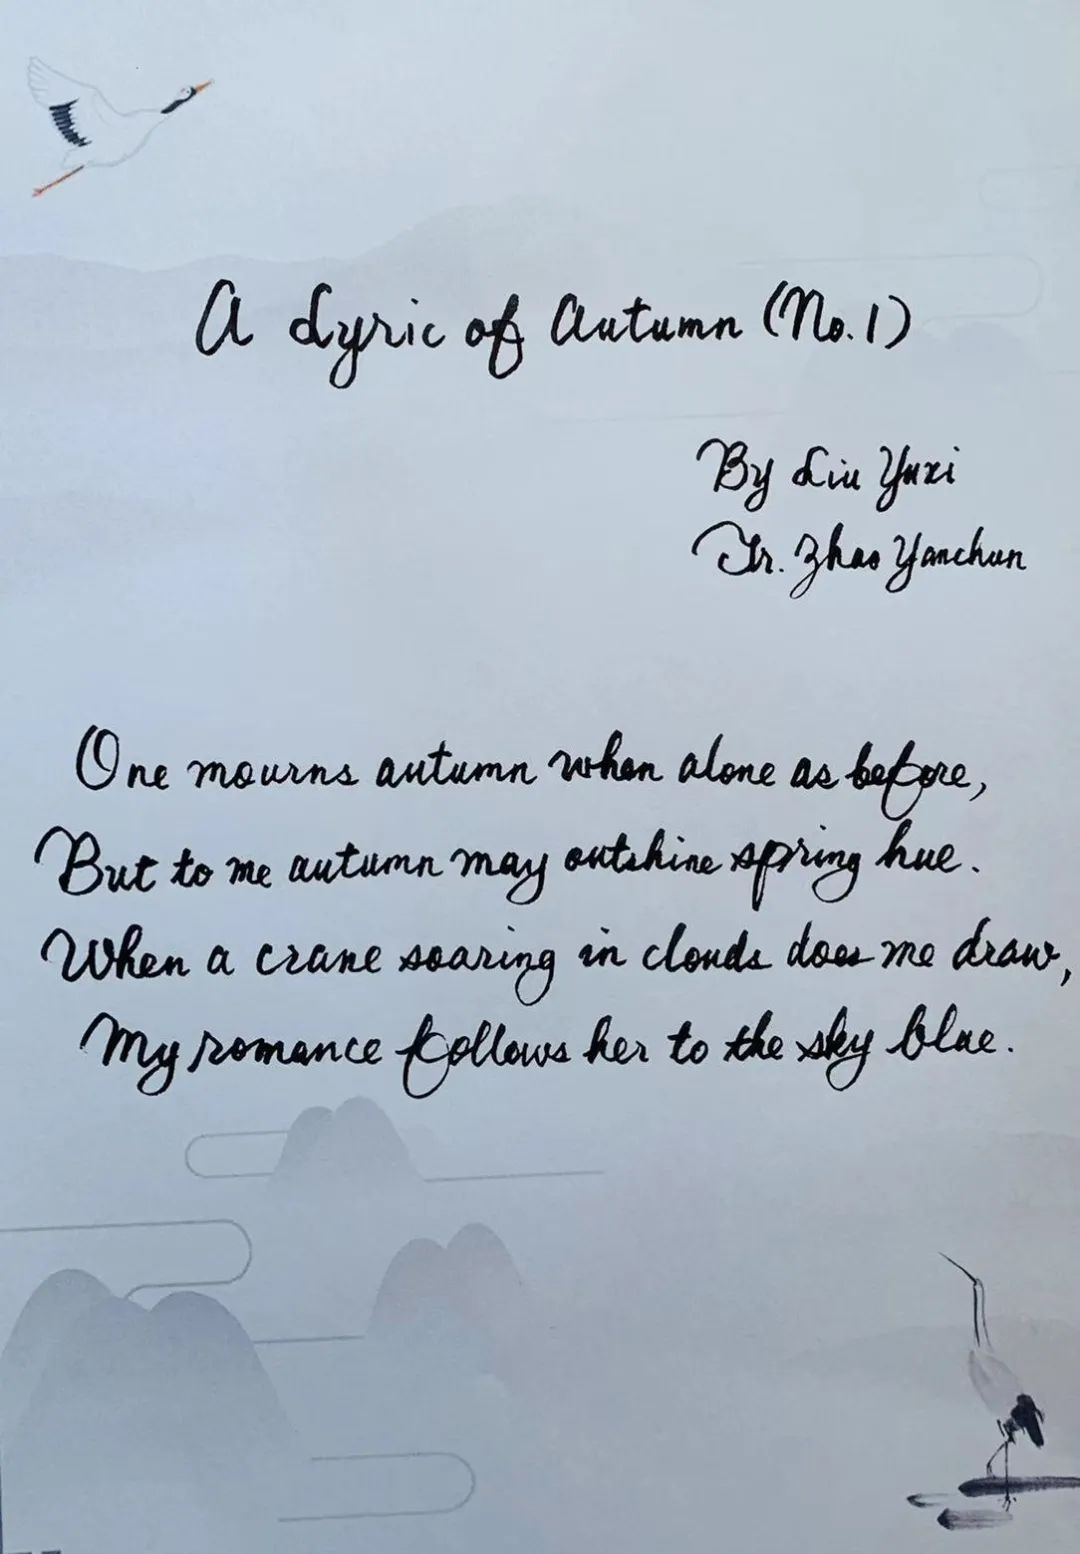 A Lyric of Autumn (No.1)
By Liu Yuxi
Tr. Zhao Yanchun
One mourns autumn when alone as before,
But to me autumn may outshine spring hue.
When a crane soaring in clouds does me draw,
My romance follows her to the sky blue.